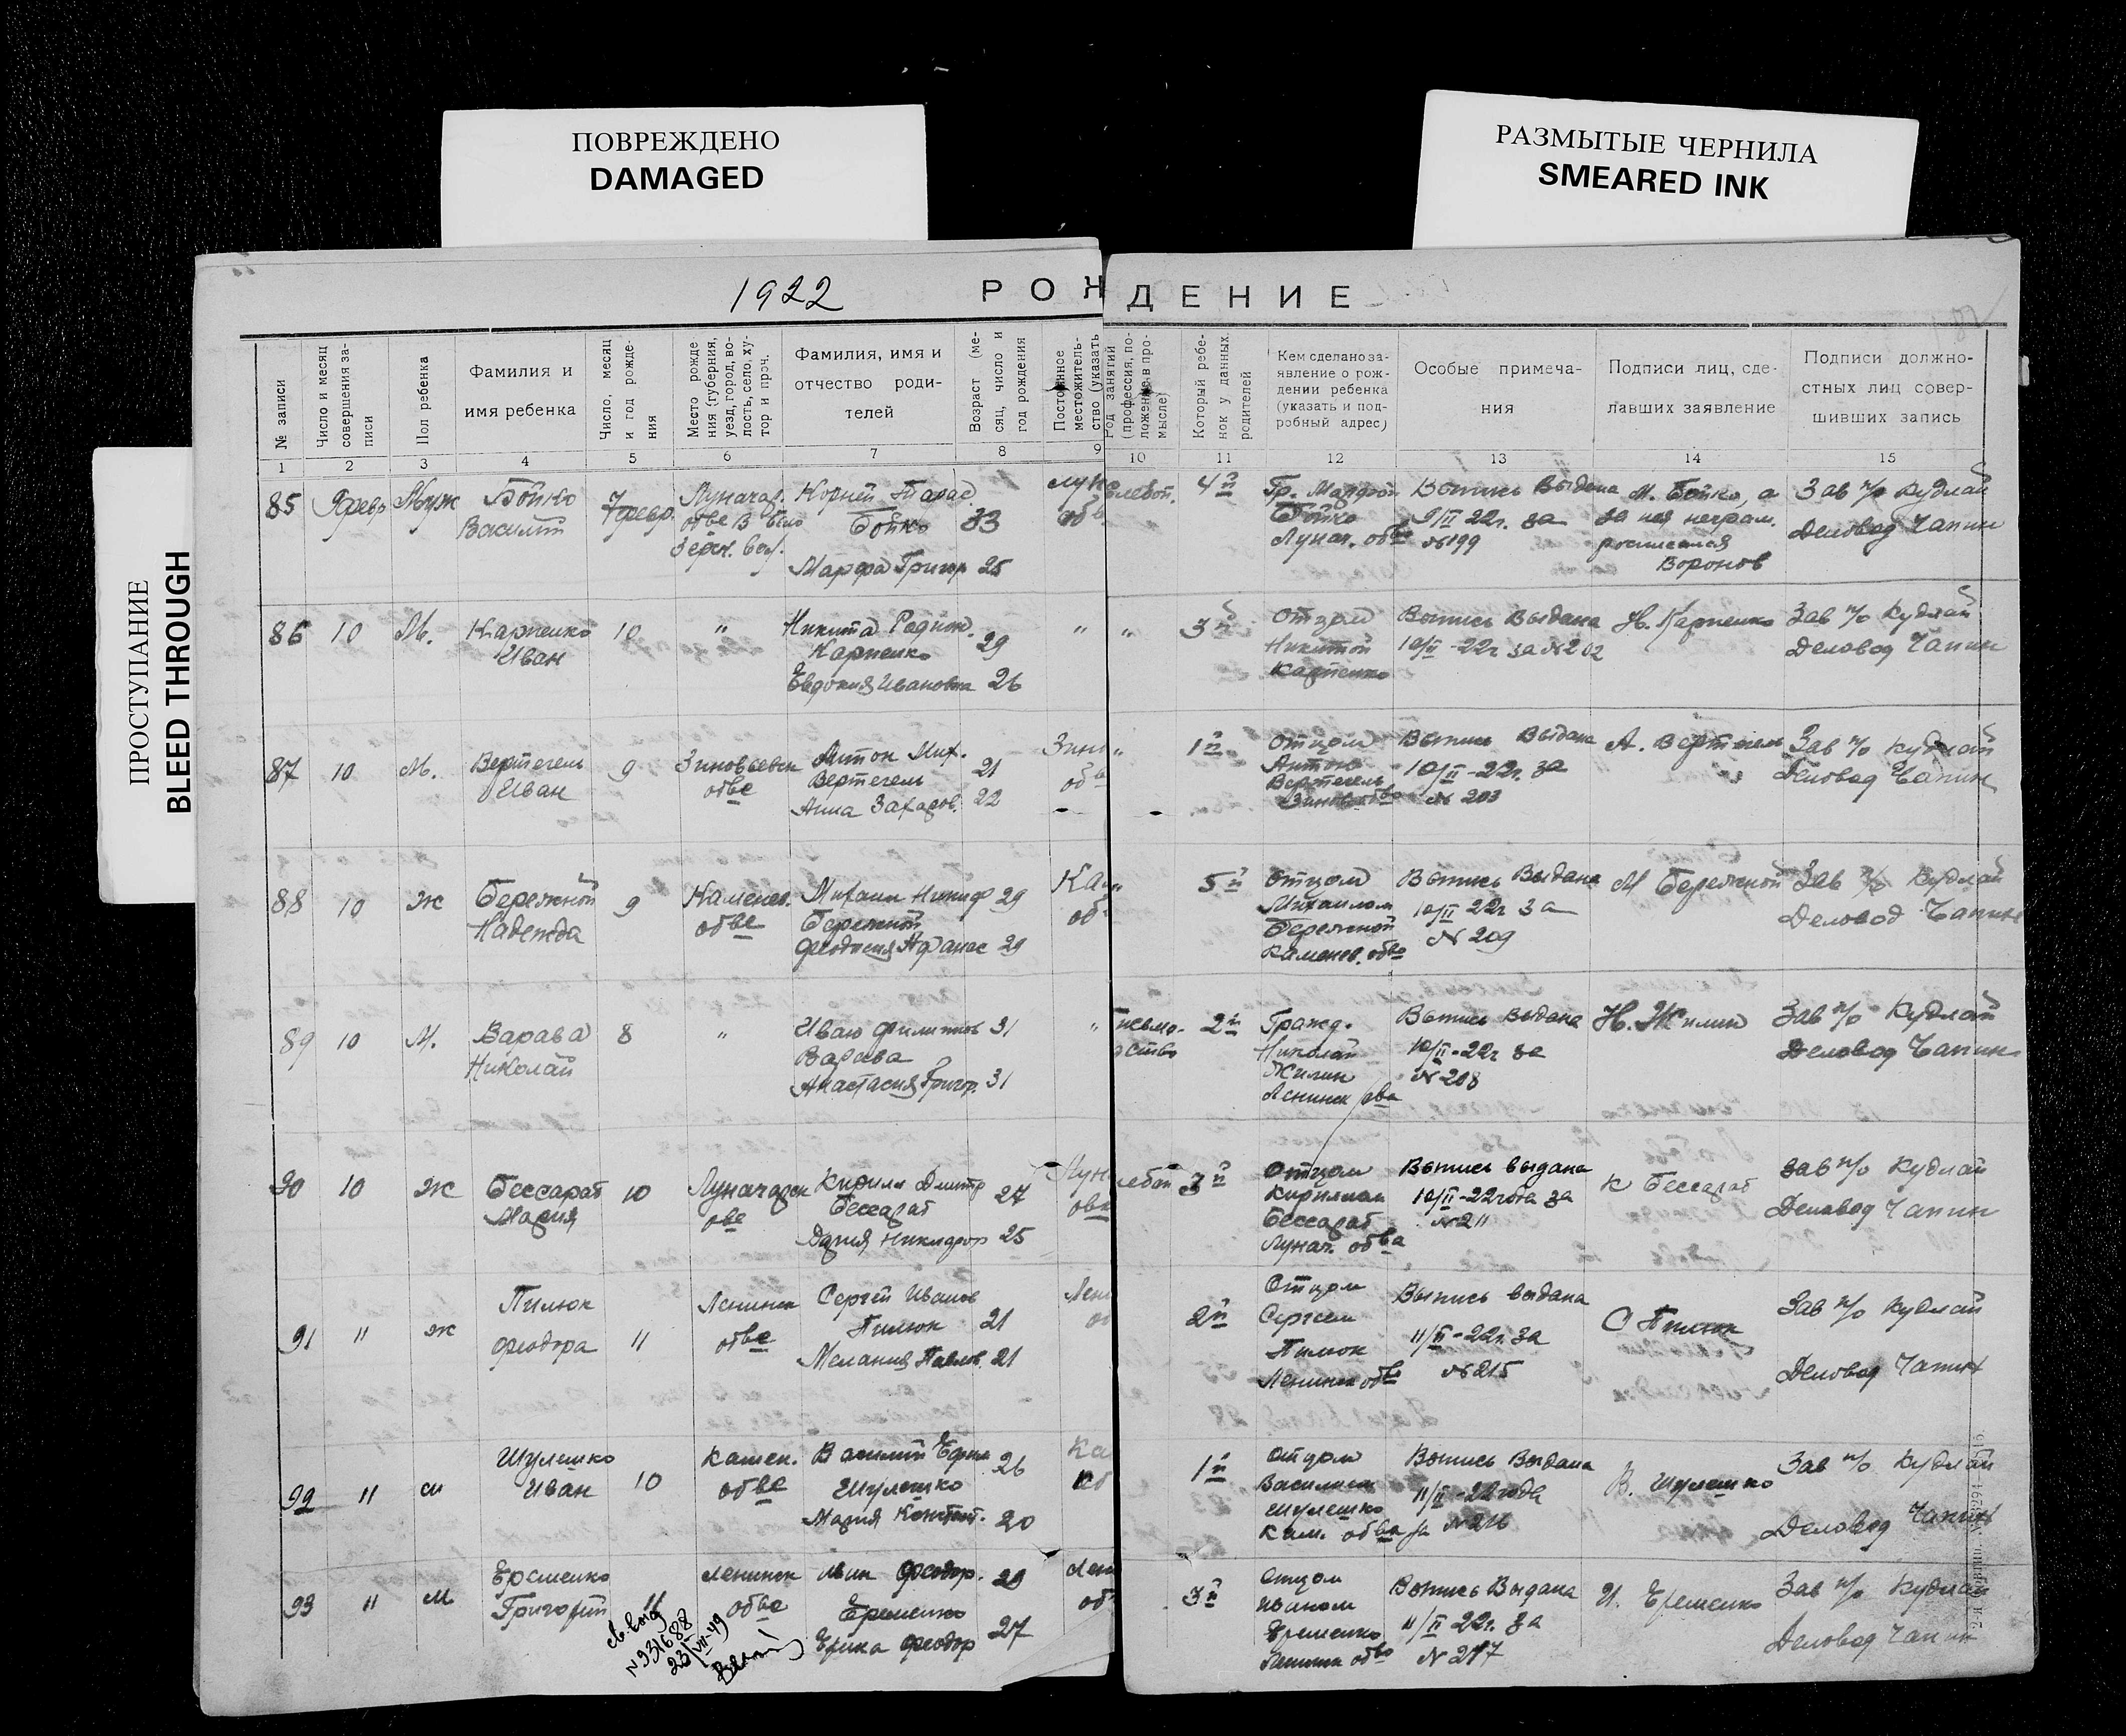 ПОВРЕЖДЕНО
DAMAGED
РАЗМЫТЫЕ ЧЕРНИЛА
SMEARED INK
ПРОСТУПАНИЕ
BLEED THROUGH
1922
РОЖДЕНИЕ
№ записи
Число и месяц
совершения за-
писи
Пол ребенка
Фамилия и
имя ребенка
Число, месяц
и год рожде-
ния
Место рожде
ния (губерния,
уезд, город, во-
лость, село, ху-
тор и проч.
Фамилия, имя и
отчество роди-
телей
Возраст (ме-
сяц, число и
год рождения
Постоянное
местожитель-
ство (указать
Род занятий
(профессия, по-
ложение в про-
мысле)
Который ребе-
нок у данных
родителей
Кем сделано за-
явление о рож-
дении ребенка
(указать и под-
робный адрес)
Особые примеча-
ния
Подписи лиц, сде-
лавших заявление
Подписи должно-
стных лиц совер-
шивших запись
1 2 3 4 5 6 7 8 9 10 11 12 13 14 15
85
Муж
Бойко
Василий
7 февр.
Луначар.
обве
Корней Тарас
Бойко
33
Марфа Григор 25
4й
Гр. Марфой
Бойко
Лунач. обва
Вопись Выдана
9/II 22г. за
№199
М. Бойко, а
за нея неграм.
росписался
Воронов
Зав п/о Кудлай
Деловод Чапин
86
10
М.
Карпенко
Иван
10
"
Никита Родион.
Карпенко
29
Евдокия Ивановна 26
"
"
3й
Отцом
Никитой
Карпенко
Вопись Выдана
10/II-22г за №202
Н. Карпенко
Зав п/о Кудлай
Деловод Чапин
87
10
М.
Вертегель
Иван
9
Зиновьевск
обве
Антон Мих.
Вертегель
21
Анна Захаров. 22
"
1й
Отцом
Антоно
Вертегель
Зинов. обва
Вопись Выдана
10/II-22г. за
№ 203
А. Вертегель
Зав п/о Кудлай
Деловод Чапин
88
10
ж
Бережной
Надежда
9
Каменев.
обве
Михаил Никиф 29
Бережной
Феодосия Афанас 29
"
5й
Отцом
Михаилом
Бережной
Каменев. обва
Вопись Выдана
10/II 22г за
№ 209
М Бережной
Зав п/о Кудлай
Деловод Чапин
89
10
М.
Варава
Николай
8
"
Иван Филиппов 31
Варава
Анастасия Григор. 31
"
2й
Гражд.
Николай
Жилин
Ленинск обва
Вопись выдана
10/II-22г за
№208
Н. Жилин
Зав п/о Кудлай
Деловод Чапин
90
10
ж
Бессараб
Мария
10
Луначарск
обве
Кирилл Дмитр
Бессараб
27
Дария Никифор 25
3й
Отцом
Кириллом
Бессараб
Лунач. обва
Вопись выдана
10/II-22года за
№211
К Бессараб
Зав п/о Кудлай
Деловод Чапин
91
11
ж
Пилюк
Феодора
11
Ленинск
обве
Сергей Иванов
Пилюк
21
Мелания Павлов. 21
2й
Отцом
Сергеем
Пилюк
Ленинск обва
Вопись выдана
11/II-22г. за
№215
С Пилюк
Зав п/о Кудлай
Деловод Чапин
92
11
м
Шулешко
Иван
10
Камен.
обве
Василий Ефим
Шулешко
26
Мария Констант. 20
1й
Отцом
Василием
Шулешко
Кам. обва
Вопись Выдана
11/II-22года
за №216
В. Шулешко
Зав п/о Кудлай
Деловод Чапин
93
11
м
Еременко
Григорий
11
Ленинск
обве
Иван Феодор.
Еременко
29
Феодор 27
3й
Отцом
Иваном
Еременко
Ленинск обва
Вопись Выдана
11/II 22г. за
№ 217
И. Еременко
Зав п/о Кудлай
Деловод Чапин
№931688
23/VII-49